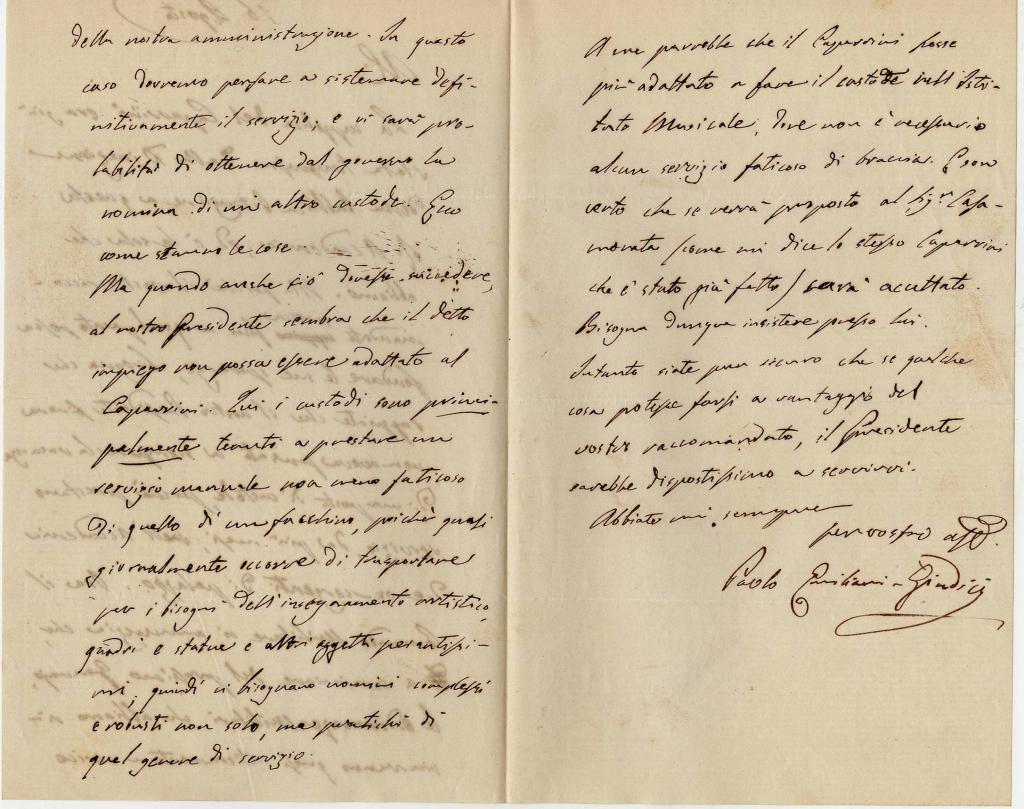 della nostra amministrazione. In questo
caso dovremo pensare a sistemare defi-
nitivamente il servizio; e vi sarà pro-
babilità di ottenere dal governo la
nomina di un altro custode. Ecco
come stanno le cose.
Ma quando anche ciò dovesse succedere,
al nostro Presidente sembra che il detto
impiego non possa essere adattato al
Caparrini. Qui i custodi sono princi-
palmente tenuti a prestare un
servizio manuale non meno faticoso
di quello di un facchino, poichè quasi
giornalmente occorre di trasportare
per i bisogni dell'insegnamento artistico,
quadri e statue e altri oggetti pesantissi-
mi, quindi ci bisognano uomini complessi
e robusti non solo, ma pratichi di
quel genere di servizio.
A me parrebbe che il Caparrini fosse
più adattato a fare il custode nell'Isti-
tuto Musicale, dove non è necessario
alcun servizio faticoso di braccia. E son
certo che se verrà proposto al Sigr. Casa-
morata (come mi dice lo stesso Caparrini
che è stato già fatto) sarà accettato.
Bisogna dunque insistere presso lui.
Intanto siate pur sicuro che se qualche
cosa potesse farsi a vantaggio del
vostro raccomandato, il Presidente
sarebbe dispostissimo a servirvi.
Abbiate mi sempre
per vostro aff.
Paolo Emiliani-Giudici